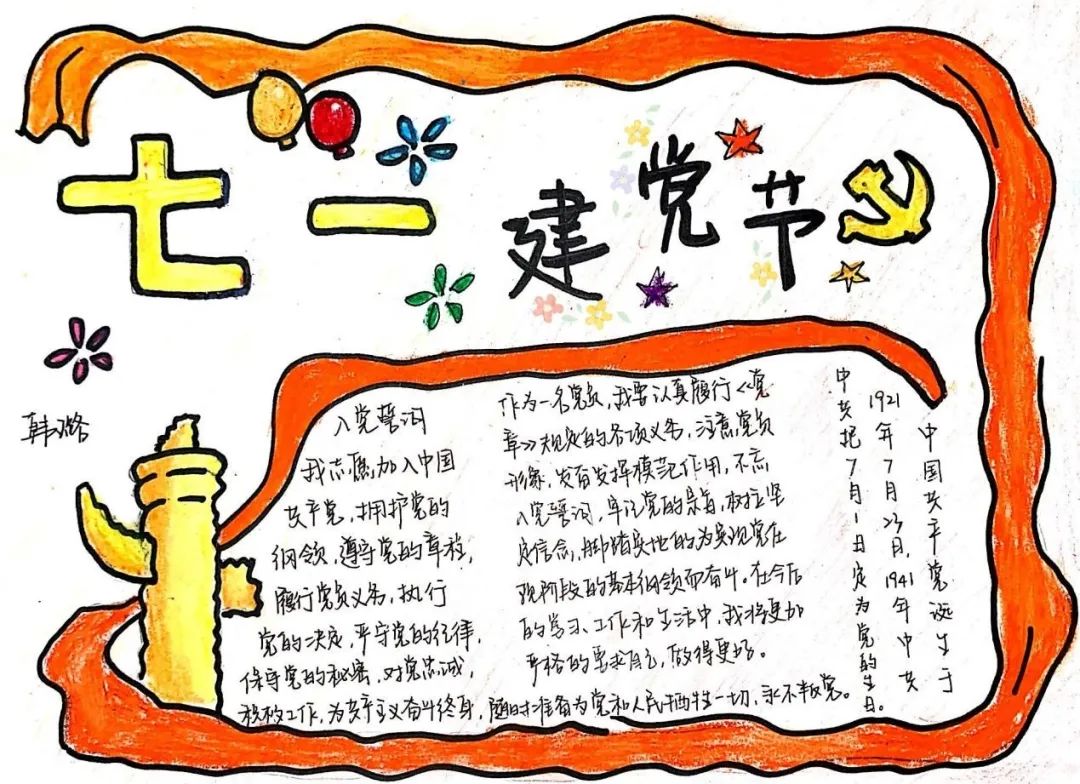 七一
建党节
韩璐
入党誓词
我志愿加入中国
共产党,拥护党的
纲领,遵守党的章程,
履行党员义务,执行
党的决定,严守党的纪律,
保守党的秘密,对党忠诚,
积极工作,为共产主义奋斗终身,随时准备为党和人民牺牲一切,永不叛党。
作为一名党员,我要认真履行《党
章》规定的各项义务,注意党员
形象,发挥模范作用,不忘
入党誓词,牢记党的宗旨,树立坚
定信念,脚踏实地的为实现党在
现阶段的基本纲领而奋斗。在今后
的学习、工作和生活中,我将更加
严格的要求自己,做得更好。
中国共产党诞生于
1921年7月23日,1941年中共
中央把7月1日定为党的生日。